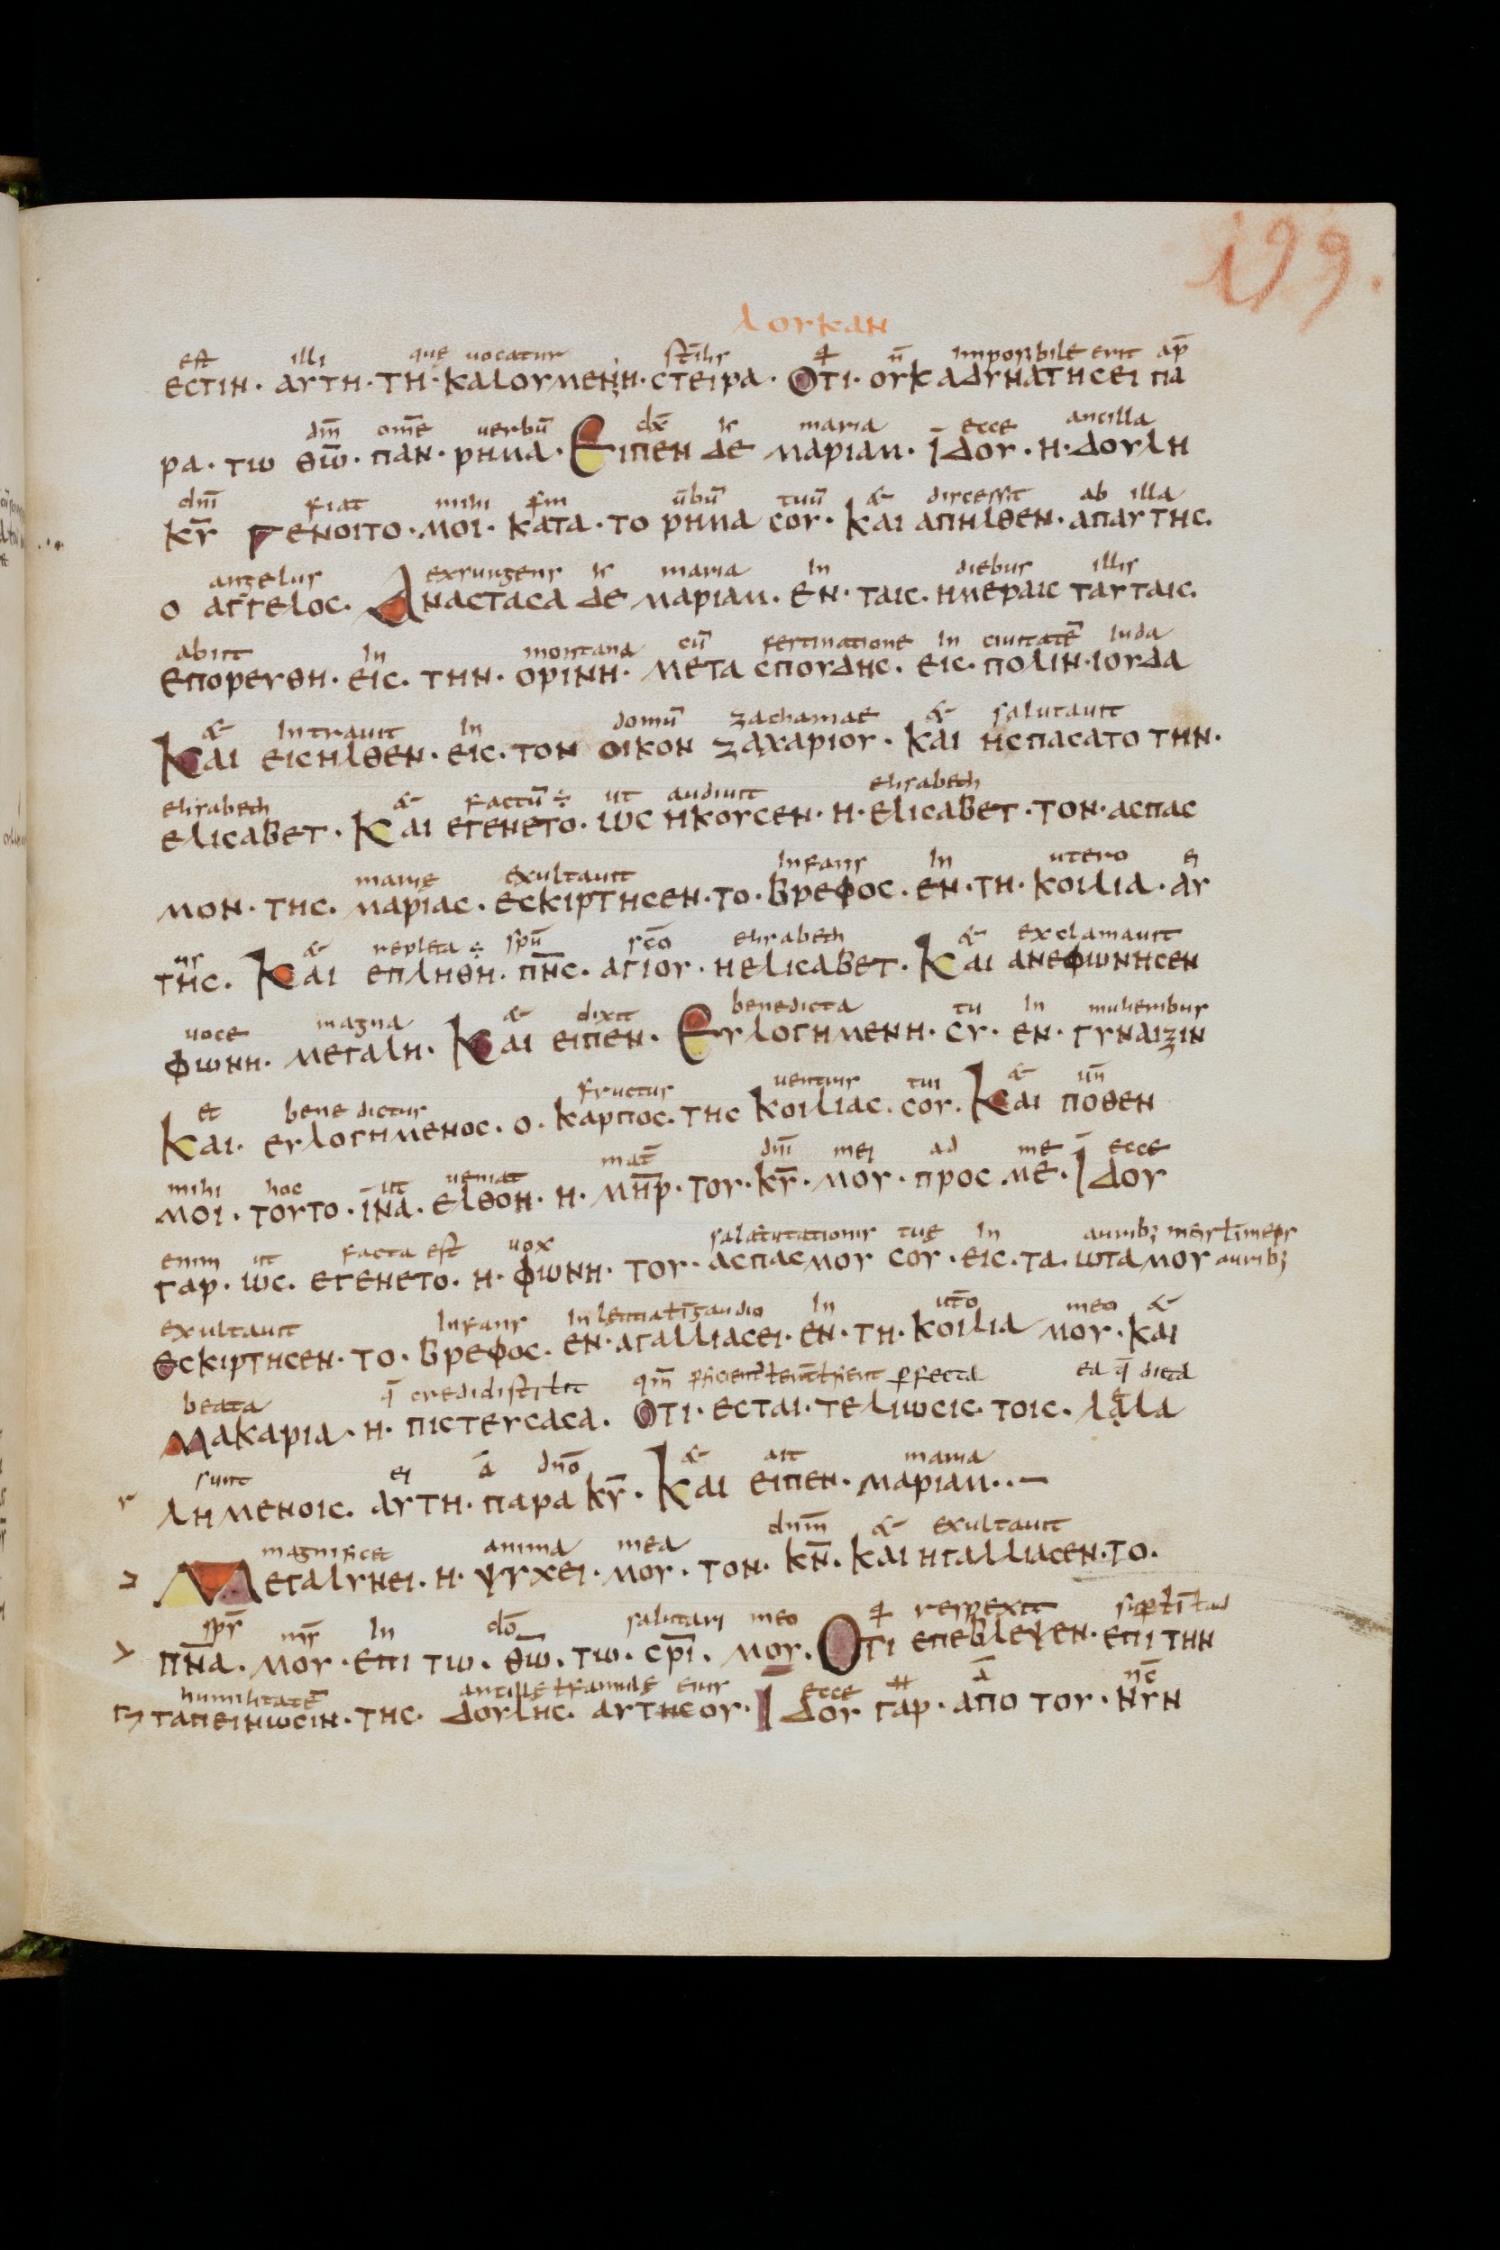 199.
λουκαν
est illi que uocatur st̄ilis ꝗ n̄ impossibile erit ap̄
εστιν· αυτη· τη· καλουμενη· στειρα· Οτι· ουκ αδυνατησει πα
dm̄ om̄e uerbū dx̄ maria ecce ancilla
ρα· τω θω̄· παν· ρημα· Ειπεν δε μαριαμ· ϊδου· η· δουλη
dnī fiat mihi ūbū tuū & discessit ab illa
κῡ Γενοιτο· μοι· κατα· το ρημα σου· και απηλθεν· απαυ της.
angelus exsurgens maria in diebus illis
ο αγγελος. Αναστασα δε μαριαμ. εν· ταις. ημεραις ταυταις.
abiit in montana cū festinatione in ciuitatē iuda
επορευθη· εις. την· ορινη· μετα σπουδης. εις· πολιν· ιουδα
& intrauit in domū zachariae & salutauit
Και εισηλθεν· εις· τον οικον ζαχαριου· και ησπασατο την·
elisabeth & factū ÷ ut audiuit elisabeth
ελισαβετ· Και εγενετο· ως ηκουσεν· η· ελισαβετ· τον· ασπασ
marie exultauit infans in utero ei
μον· της. μαριας· εσκιρτησεν· το· βρεφος· εν· τη· κοιλια· αυ
us & repleta ÷ spū scō elisabeth & exclamauit
της. Και επληθη· πν̄ς· αγιου· η ελισαβετ· Και ανεφωνησεν
uoce magna & dixit benedicta tu in mulieribus
φωνη· μεγαλη· Και ειπεν· Ευλογημενη· συ· εν· γυναιζιν
et benedictus fructus uentris tui & un̄
Και· ευλογημενος· ο· καρπος· της κοιλιας· σου· Και ποθεν
mihi hoc ut ueniat mat̄ dnī mei ad me ecce
μοι· τουτο· ϊνα· ελθον· η· μη̄ρ· του· κῡ· μου· προς με· Ιδου
enim ut facta est uox salutationis tue in aurib; meis ł in meis
γαρ· ως· εγενετο· η· φωνη· του· ασπασμου σου· εις· τα· ωτα μου aurib;
exultauit infans in letitia ł in gaudio in ut̄o meo &
εσκιρτησεν· το· βρεφος· εν· αγαλλιασει· εν· τη· κοιλια μου· και
beata q̄ credidisti ł it qm̄ perfecta ea q̄ dicta
Μακαρια· η· πιστευσασα. Οτι· εσται· τελιωσις· τοις· λαλα
sunt ei ā dnō & ait maria
λημενοις· αυτη· παρα κῡ· Και ειπεν· μαριαμ··—
magnificet anima mea dnm̄ & exultauit
Μεγαλυνει· η· ψυχει· μου· τον· κν̄· και ηγαλλιασεν· το·
sp̄s m̄s in dō salutari meo ꝗ respexit
πν̄α· μου· επι τω· θω̄· τω· σρ̄ι· μου· Οτι επεβλεψεν· επι την
humilitatē ancille ł famule eius ecce ā
ταπεινωσιν· της· δουλης· αυτης ου· Ιδου γαρ· απο του· νυν